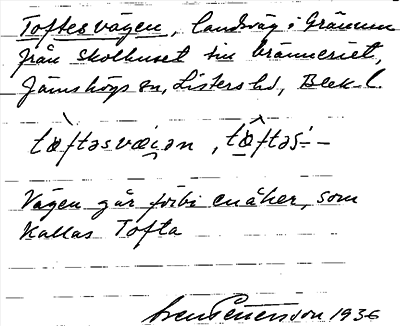 Toftesvägen, landsväg i Gränum
från skolhuset till bränneriet,
Jämshögs sn, Listers hd, Blek. l.
tæ̀ftəsvæi̯ən, tæ̂ftəs- –
Vägen går förbi en åker, som
kallas Tofta
Sven Petersson 1936